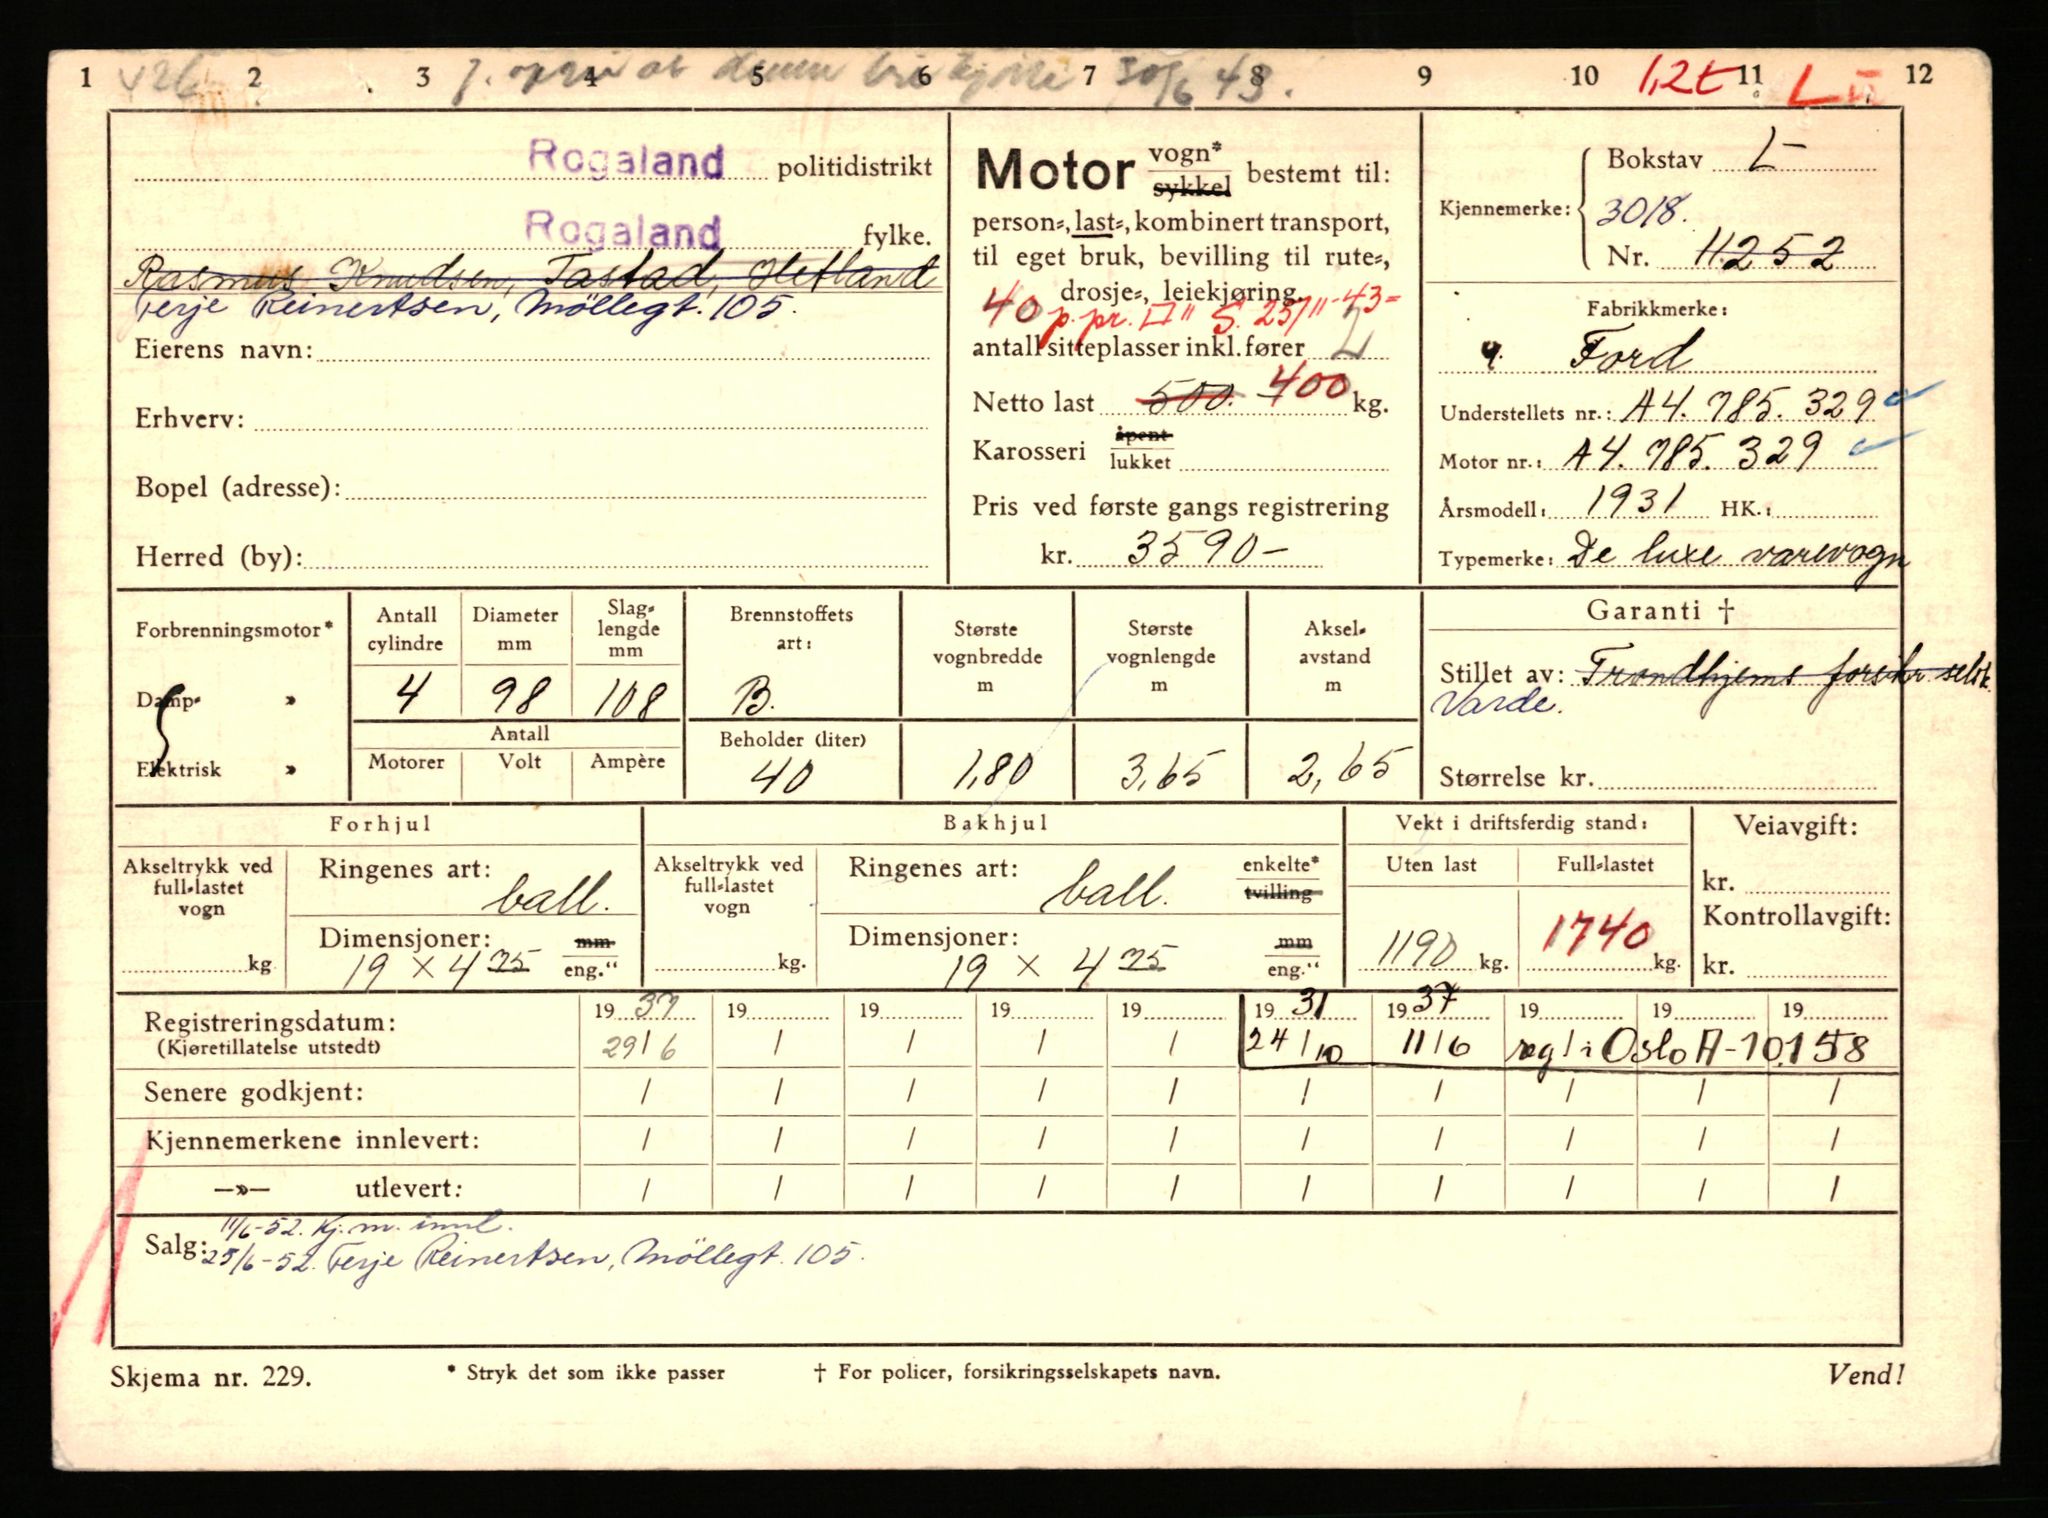 1 2 3 4 5 6 7 8 9 10 11 12
30/6 43.
1,2t L II
Rogaland politidistrikt
Rogaland fylke.
Rasmus Knudsen, Tastad, Hetland
Terje Reinertsen, Möllegt. 105.
Eierens navn:
Erhverv:
Bopel (adresse):
Herred (by):
Motor vogn* sykkel bestemt til:
person-, last-, kombinert transport,
til eget bruk, bevilling til rute-,
drosje-, leiekjøring.
40 p. pr. II" S. 25/11-43=
antall sitteplasser inkl. fører 2
Netto last 500. 400 kg.
Karosseri åpent lukket
Pris ved første gangs registrering
kr. 3590-
Kjennemerke: Bokstav L
3018.
Nr. 11252
Fabrikkmerke:
Ford
Understellets nr.: A4.785.329
Motor nr.: A4.785.329
Årsmodell: 1931 HK.:
Typemerke: De luxe varevogn
Forbrenningsmotor*
Damp- »
Elektrisk »
Antall cylindre
4
Diameter mm
98
Slag-lengde mm
108
Antall
Motorer Volt Ampère
Brennstoffets art:
B.
Beholder (liter)
40
Største vognbredde m
1,80
Største vognlengde m
3,65
Aksel-avstand m
2,65
Garanti †
Stillet av: Trondhjems forsikr selsk.
Varde.
Størrelse kr.
Forhjul
Akseltrykk ved full-lastet vogn
kg.
Ringenes art:
ball.
Dimensjoner: mm
19 x 4 75 eng."
Bakhjul
Akseltrykk ved full-lastet vogn
kg.
Ringenes art: enkelte*
ball. tvilling
Dimensjoner: mm
19 x 4 75 eng."
Vekt i driftsferdig stand:
Uten last Full-lastet
1190 kg. 1740 kg.
Veiavgift:
kr.
Kontrollavgift:
kr.
Registreringsdatum: 19 37 19 19 19 19 19 31 19 37 19 19 19
(Kjøretillatelse utstedt) 29/6 / / / / 24/10 11/6 reg i Oslo A-10.158
Senere godkjent: / / / / / / / / / /
Kjennemerkene innlevert: / / / / / / / / / /
—»— utlevert: / / / / / / / / / /
11/6-52. Kj. m. innl.
Salg: 25/6-52. Terje Reinertsen, Möllegt. 105.
Skjema nr. 229. * Stryk det som ikke passer † For policer, forsikringsselskapets navn. Vend!